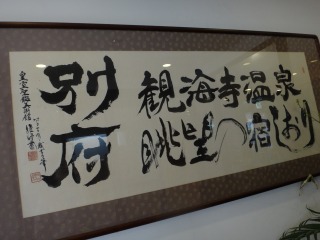 別府
観海寺温泉
眺望の宿しおり